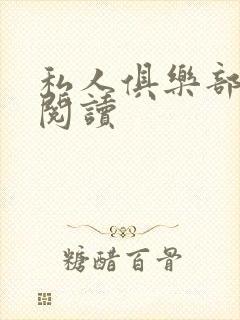 私人俱樂部
閱讀
糖醋百骨